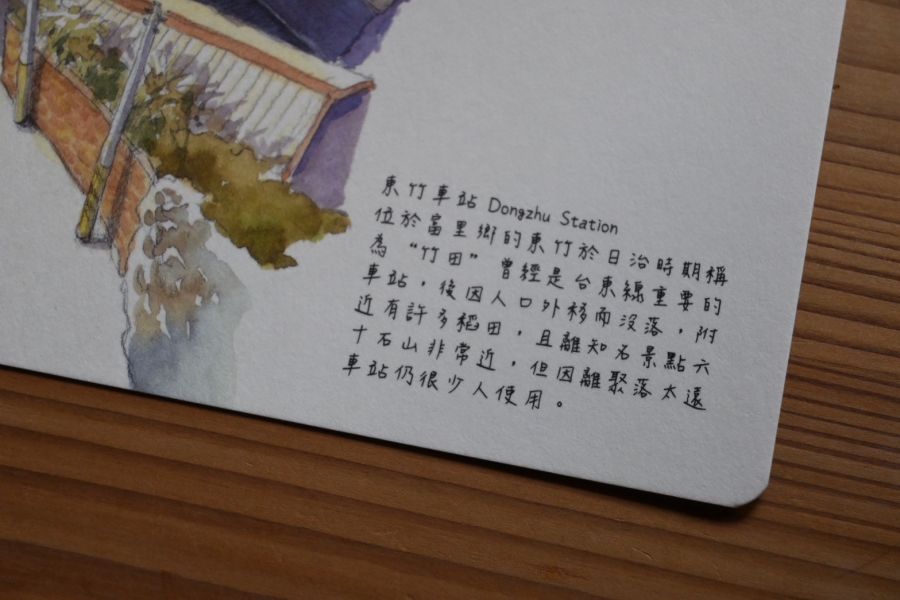 東竹車站 Dongzhu Station
位於富里鄉的東竹於日治時期稱
為“竹田”曾經是台東線重要的
車站，後因人口外移而沒落，附
近有許多稻田，且離知名景點六
十石山非常近，但因離聚落太遠
車站仍很少人使用。